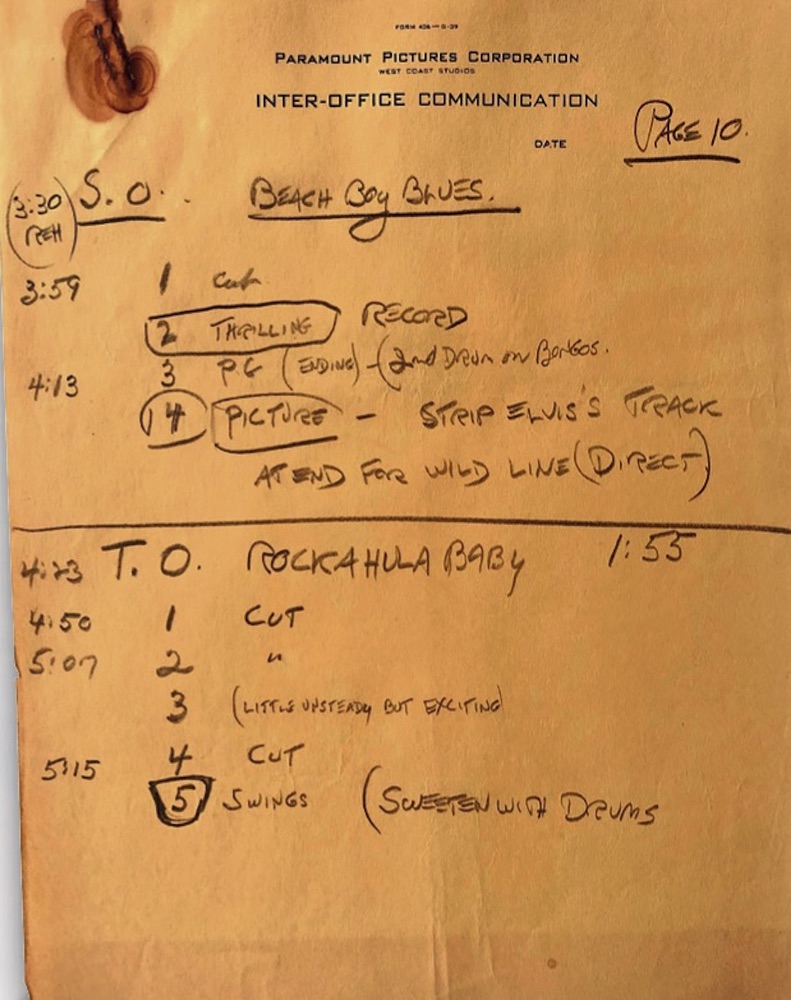 FORM 406—11-39
PARAMOUNT PICTURES CORPORATION
WEST COAST STUDIOS
INTER-OFFICE COMMUNICATION
DATE
PAGE 10.
(3:30 REH) S. O. BEACH BOY BLUES.
3:59 1 Cut
2 THRILLING RECORD
3 PG (ENDING) - (2nd DRUM on BONGOS.
4:13
14 PICTURE - STRIP ELVIS'S TRACK
AT END FOR WILD LINE (DIRECT)
4:23 T. O. ROCKAHULA BABY 1:55
4:50 1 CUT
5:07 2 "
3 (LITTLE UNSTEADY BUT EXCITING)
4 CUT
5:15
5 SWINGS (SWEETEN WITH DRUMS